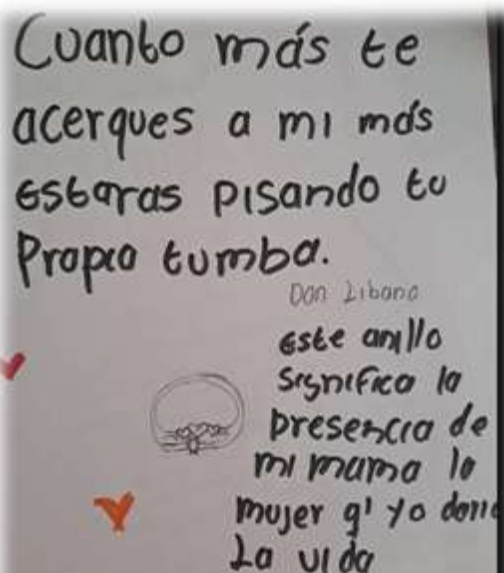 Cuanto más te
acerques a mi más
estaras pisando tu
Propia tumba.
Don Libano
este anillo
significa la
presencia de
mi mama la
mujer q' yo
La vida